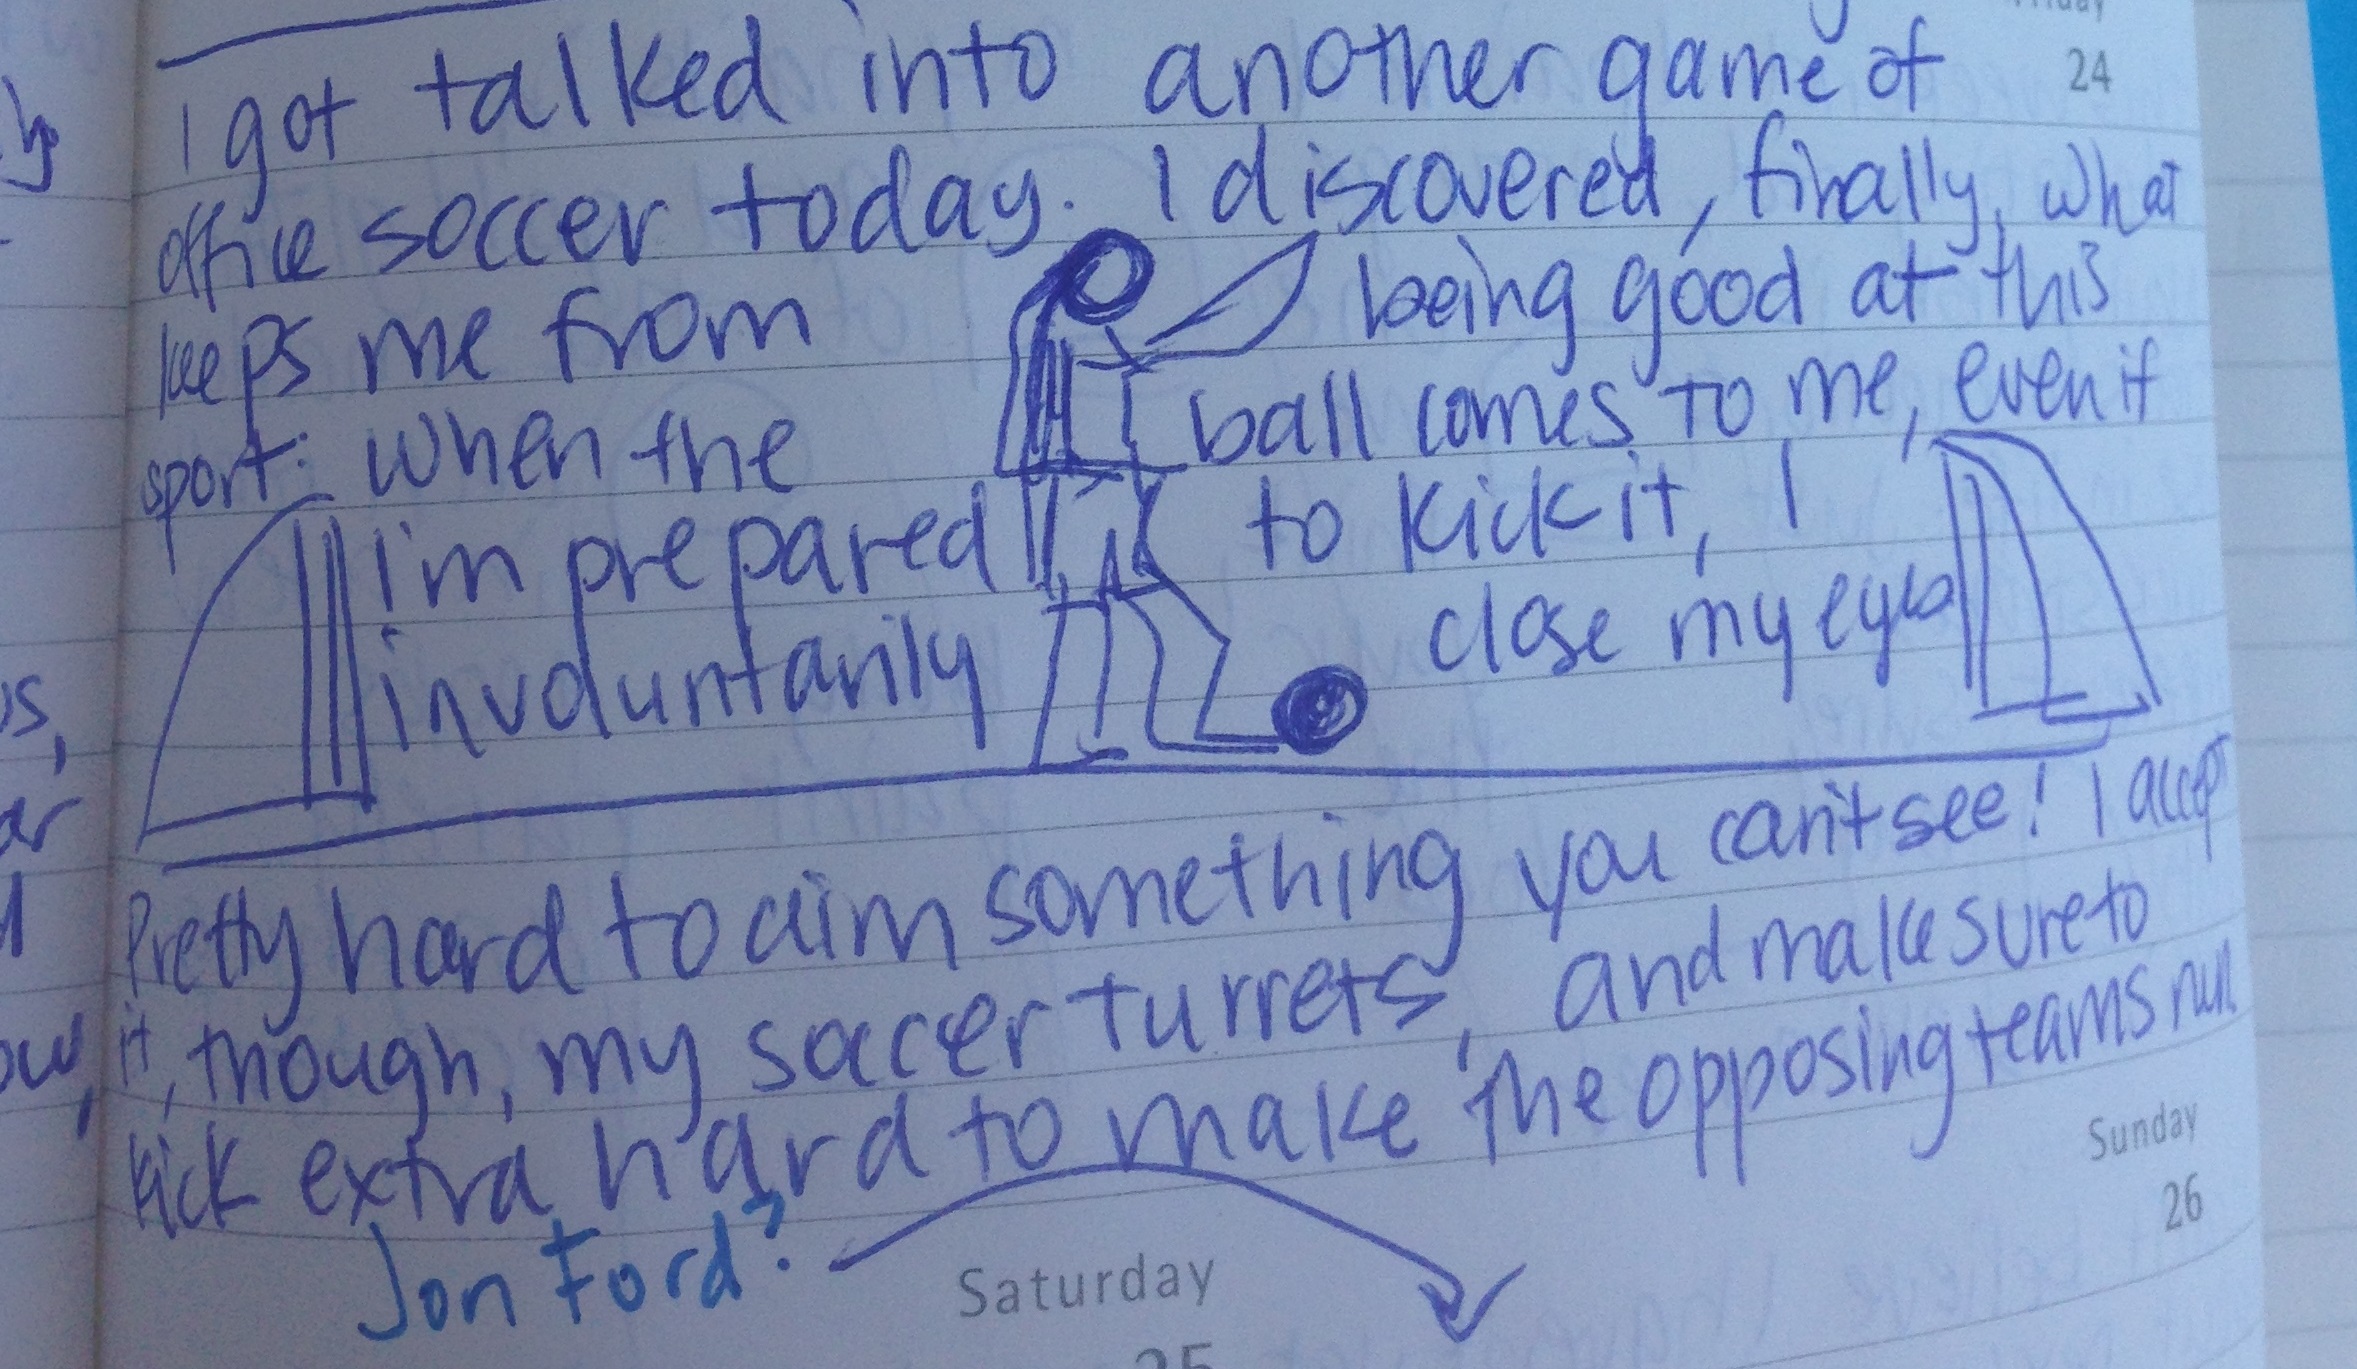 Friday
24
I got talked into another game of
office soccer today. I discovered, finally, what
keeps me from being good at this
sport: when the ball comes to me, even if
I'm prepared to kick it, I
involuntarily close my eyes
Pretty hard to aim something you can't see! I accept
it, though, my soccer turrets, and make sure to
kick extra hard to make the opposing teams run
Jon Ford?
Saturday
25
Sunday
26